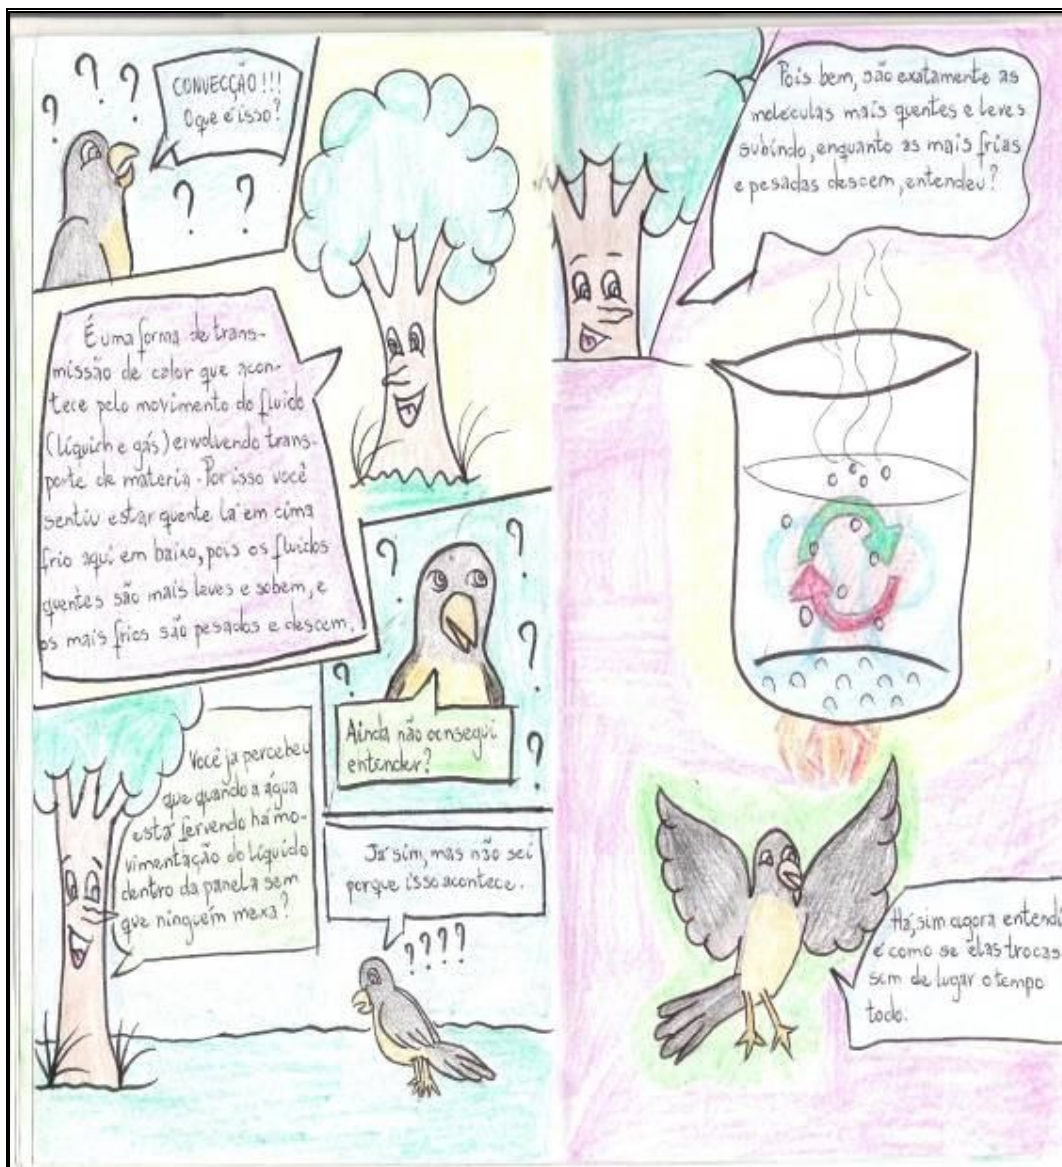 CONVECÇÃO!!!
O que é isso?
É uma forma de trans-
missão de calor que acon-
tece pelo movimento do fluido
(líquich e gás) envolvendo trans-
porte de materia. Por isso você
sentiu estar quente lá em cima
frio aqui em baixo, pois os fluidos
quentes são mais leves e sobem, e
os mais frios são pesados e descem.
? ? ? ? ?
Ainda não consegui
entender?
Você ja percebeu
que quando a água
está fervendo há mo-
vimentação do líquido
dentro da panela sem
que ninguém mexa?
Já sim, mas não sei
porque isso acontece.
????
Pois bem, são exatamente as
moleculas mais quentes e leves
subindo, enquanto as mais frias
e pesadas descem, entendeu?
Há, sim agora entendi
é como se elas trocas
sem de lugar o tempo
todo.